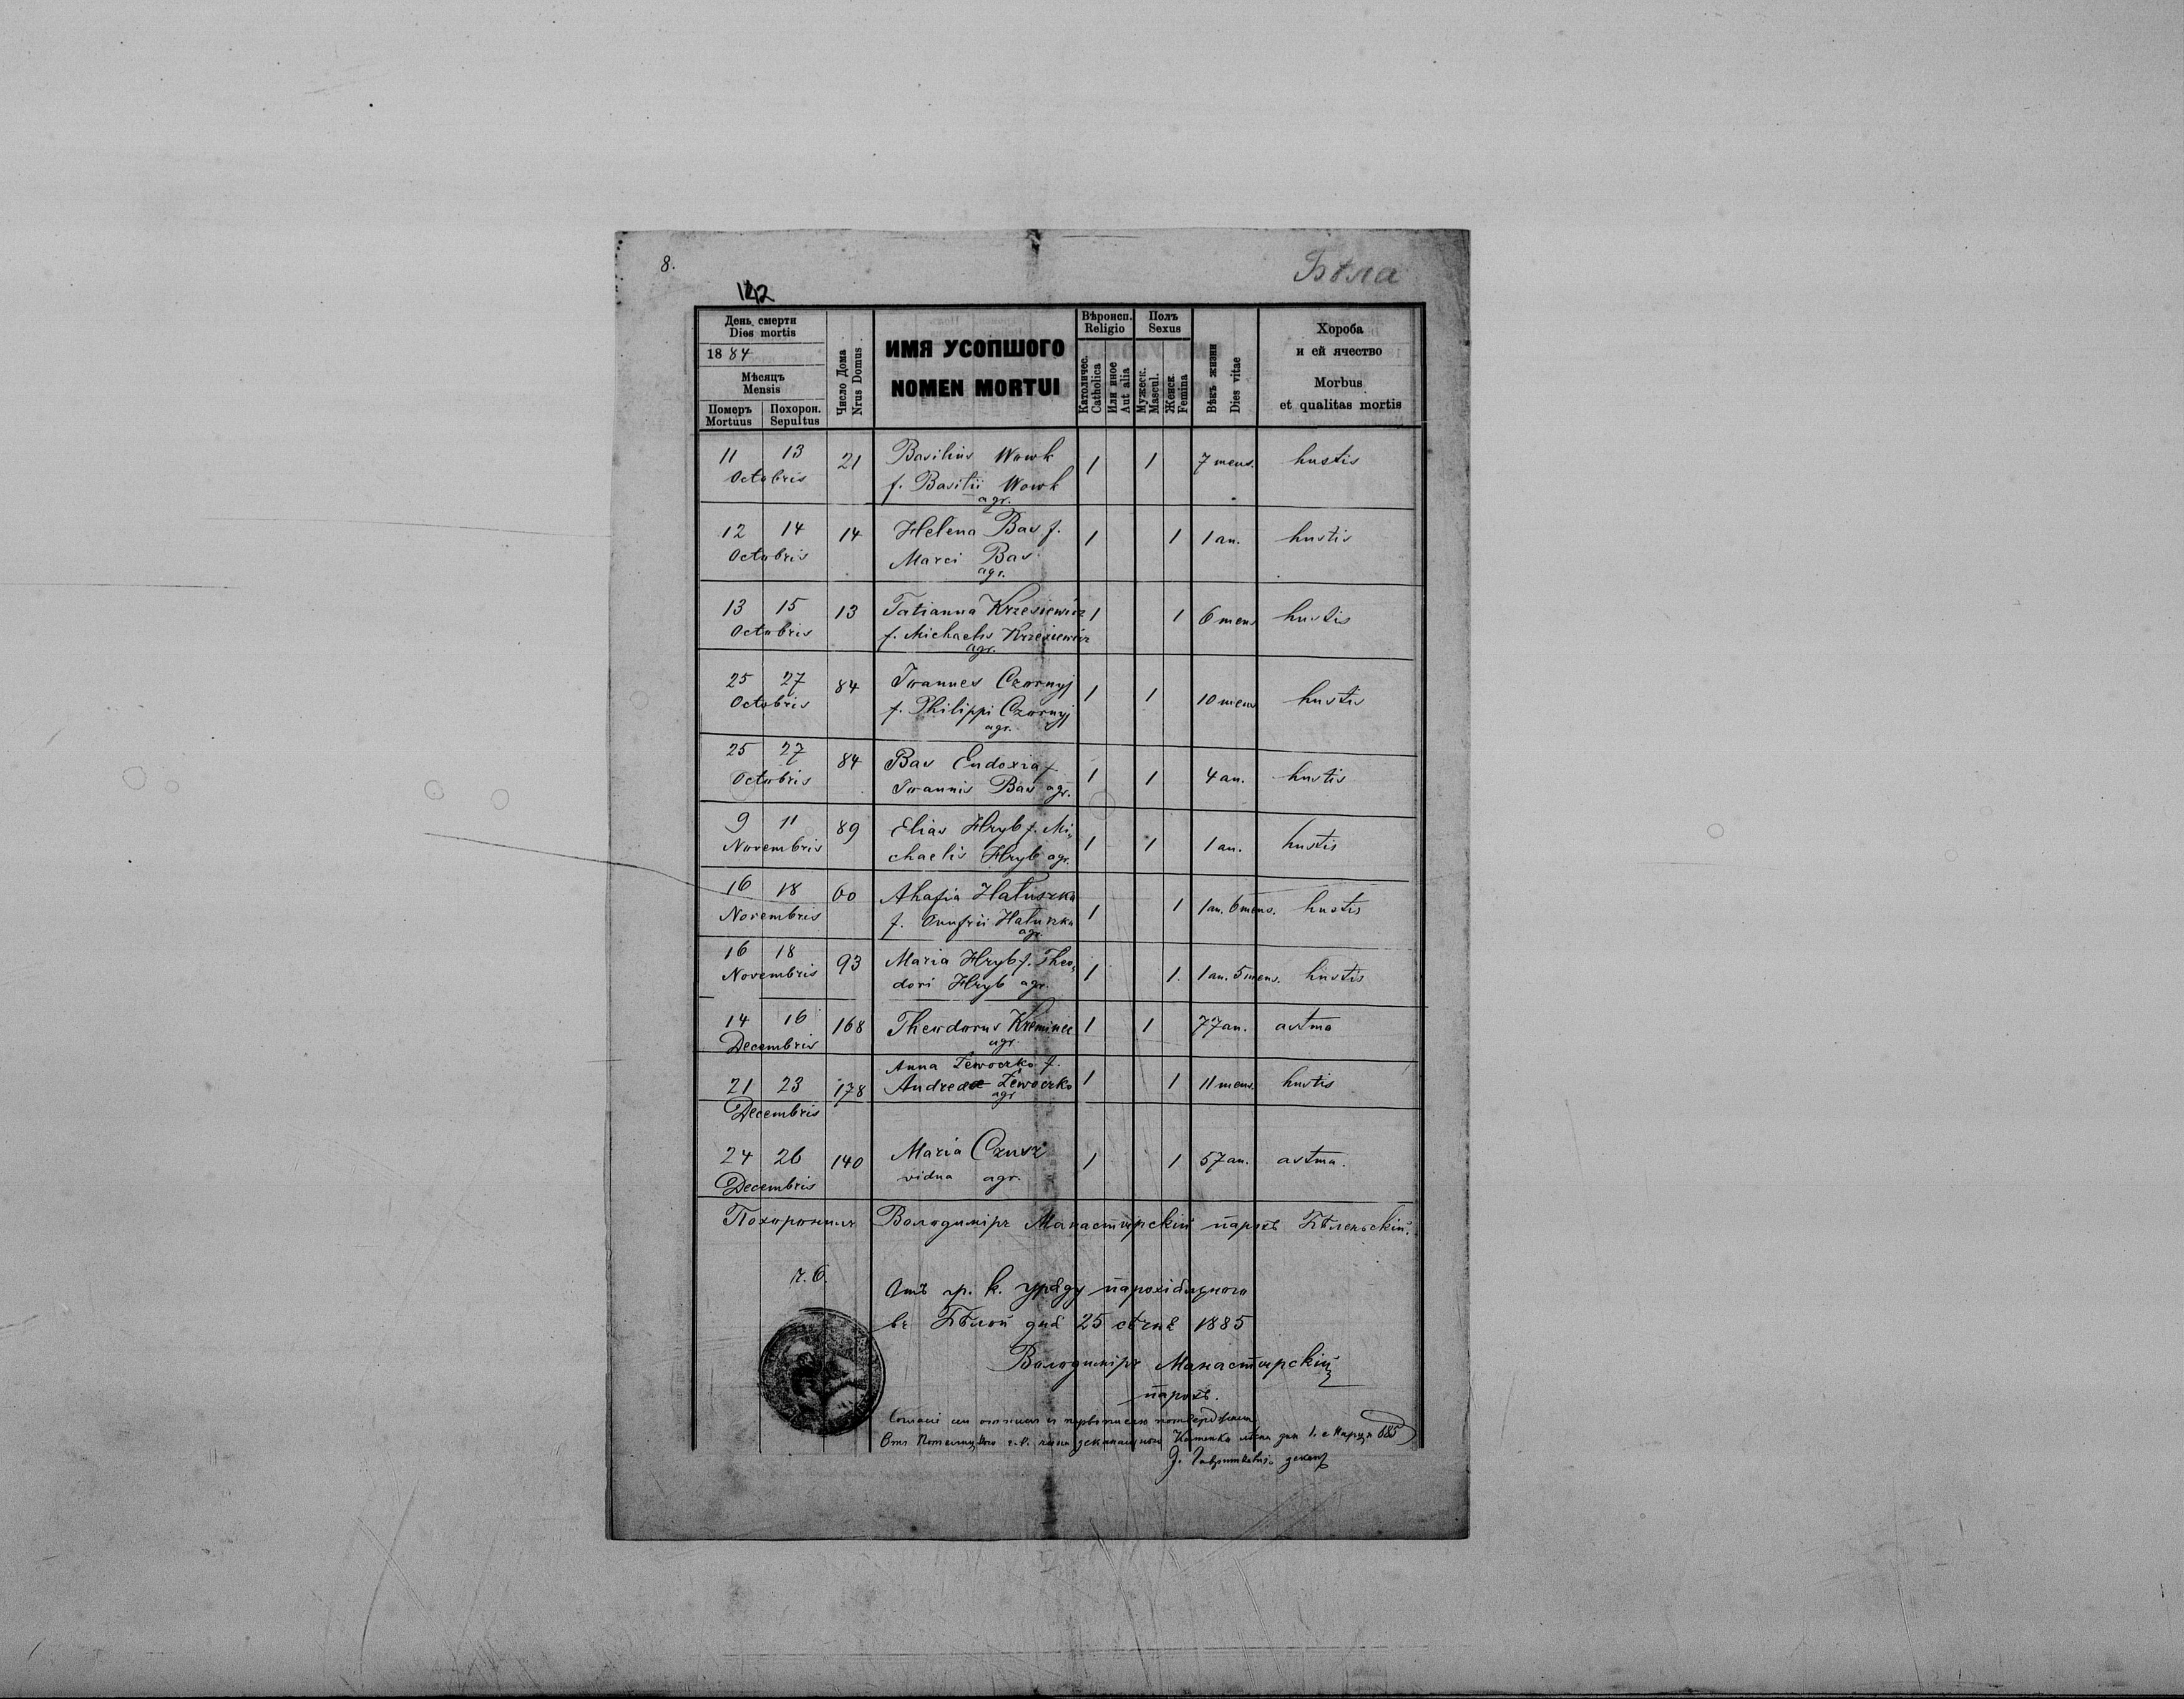 8.
Бѣла
142
День смерти
Dies mortis
1884
Мѣсяцъ
Mensis
Померъ Похорон.
Mortuus Sepultus
Число Дома
Nrus Domus
ИМЯ УСОПШОГО
NOMEN MORTUI
Вѣроисп.
Religio
Католичес.
Catholica
Или иное
Aut alia
Полъ
Sexus
Мужеск.
Mascul.
Женск.
Femina
Вѣкъ жизни
Dies vitae
Хороба
и ей ячество
Morbus
et qualitas mortis
11 13 21 Basilius Wowk 1 1 7 mens. hustis
Octobris f. Basilii Wowk
agr.
12 14 14 Helena Bas f. 1 1 1 an. hustis
Octobris Marci Bas
agr.
13 15 13 Tatianna Krzesiewicz 1 1 6 mens hustis
Octobris f. Michaelis Krzesiewicz
agr.
25 27 84 Ioannes Czornyj 1 1 10 mens hustis
Octobris f. Philippi Czornyj
agr.
25 27 84 Bas Eudoxia f. 1 1 4 an. hustis
Octobris Ioannis Bas agr.
9 11 89 Elias Hryb f. Mi- 1 1 1 an. hustis
Novembris chaelis Hryb agr.
16 18 60 Ahafia Hałuszka 1 1 1 an. 6 mens. hustis
Novembris f. Onufrii Hałuszka
agr.
16 18 93 Maria Hryb f. Theo- 1 1. 1 an. 5 mens. hustis
Novembris dori Hryb agr.
14 16 168 Theodorus Kreminec 1 1 77 an. astma
Decembris agr.
Anna Lewoczko f.
21 23 178 Andreae Lewoczko 1 1 11 mens. hustis
Decembris agr
24 26 140 Maria Czusz 1 1 57 an. astma.
Decembris vidua agr.
Похоронилъ Володимiръ Манастырскiй парохъ Бѣленьскiй.
ч. 6.
Отъ гр. к. уряду парохіяльного
въ Бѣлой дня 25 сѣчня 1885
Володимiръ Манастырскiй
парохъ.
деканъ